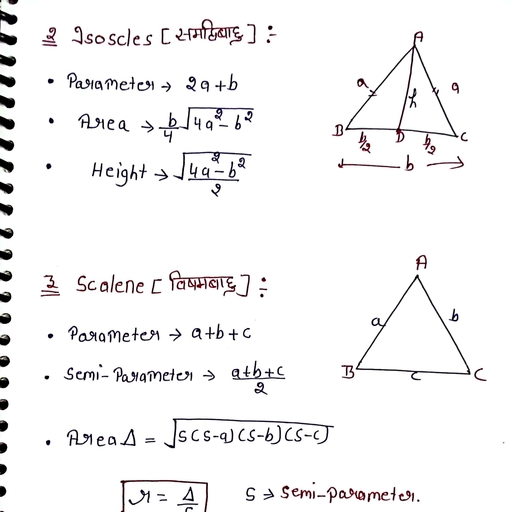 2 Isoscles [समद्विबाहु] :-
• Parameter → 2a+b
• Area → b/4 √4a²-b²
• Height → √4a²-b²/2
A
a
h
a
B
D
C
b/2
b/2
b
3 Scalene [विषमबाहु] :-
• Parameter → a+b+c
• Semi-Parameter → a+b+c/2
• Area Δ = √S(S-a)(S-b)(S-c)
A
a
b
B
c
C
r = Δ/S
S → Semi-parameter.